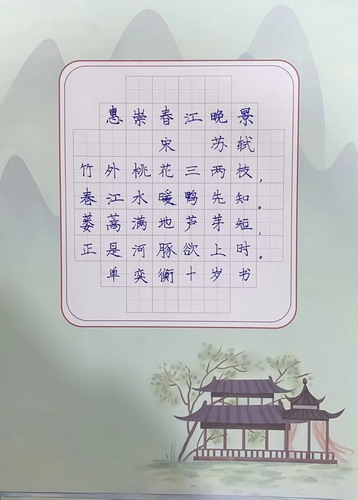 惠崇春江晚景
宋 苏轼
竹外桃花三两枝，
春江水暖鸭先知。
蒌蒿满地芦芽短，
正是河豚欲上时。
单奕衡十岁书